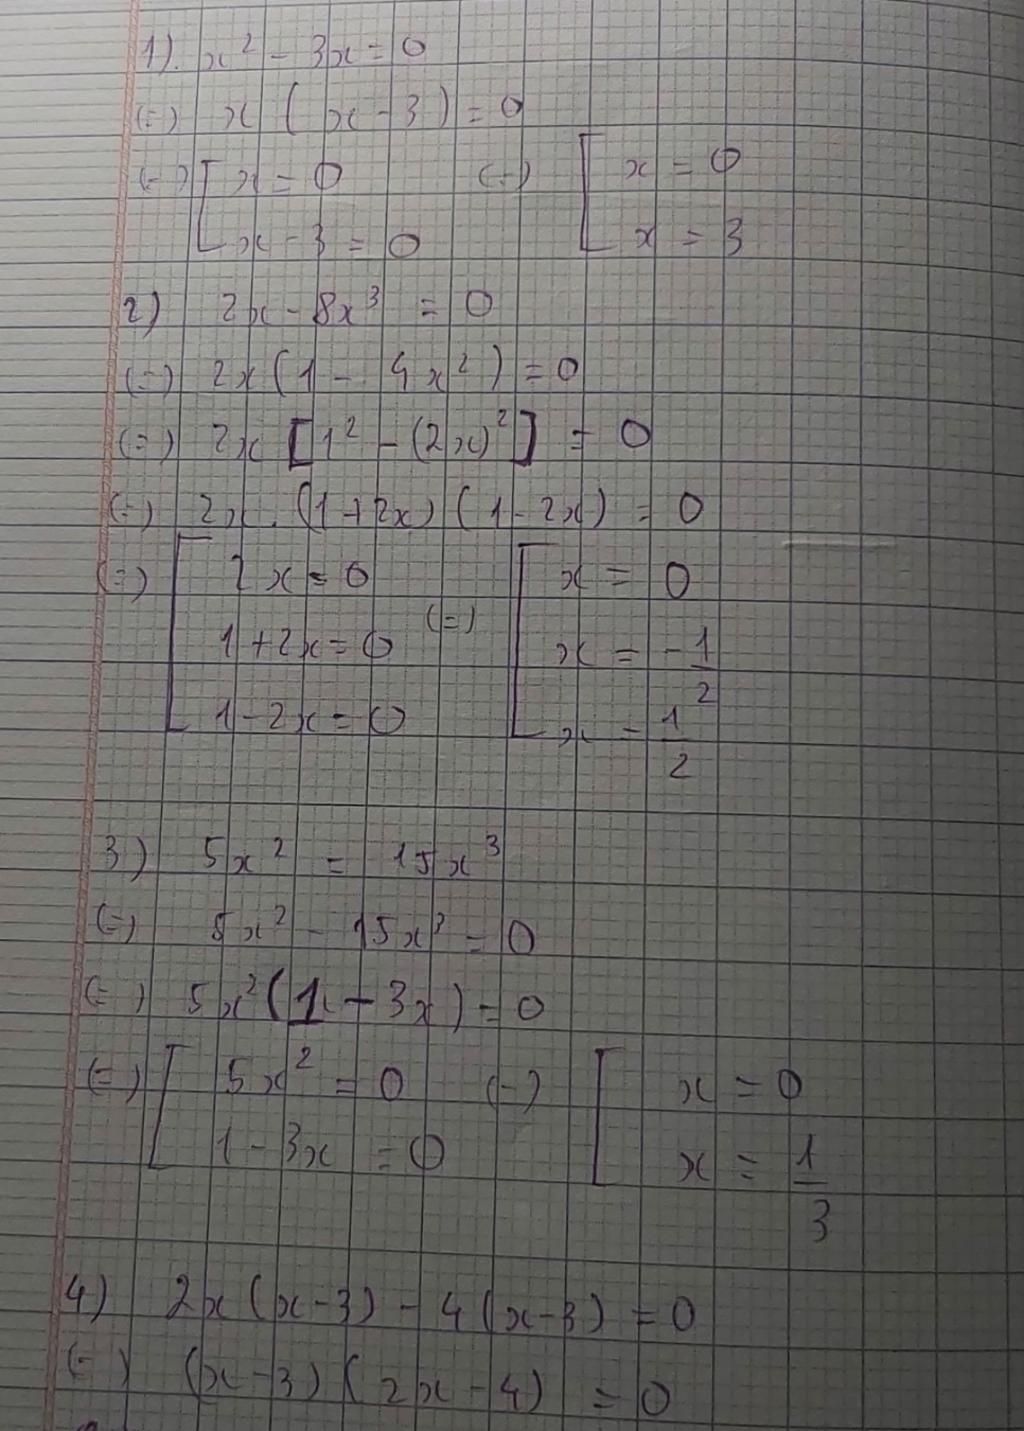 1). x² - 3x = 0
(=) x ( x - 3 ) = 0
(=) [ x = 0 (=) [ x = 0
x - 3 = 0 x = 3
2) 2x - 8x³ = 0
(=) 2x ( 1 - 4x² ) = 0
(=) 2x [ 1² - (2x)² ] = 0
(=) 2x . (1 + 2x) (1 - 2x) = 0
(=) [ 2x = 0 (=) [ x = 0
1 + 2x = 0 x = -1/2
1 - 2x = 0 x = 1/2
3) 5x² = 15x³
(=) 5x² - 15x³ = 0
(=) 5x² ( 1 - 3x ) = 0
(=) [ 5x² = 0 (=) [ x = 0
1 - 3x = 0 x = 1/3
4) 2x (x - 3) - 4 (x - 3) = 0
(=) (x - 3) (2x - 4) = 0